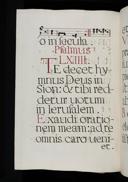 o in secula.
Psalmus
LXIIII.
TE decet hy-
mnus Deus in
Sion: & tibi red-
detur votum
in Ierusalem.
Exaudi oratio-
nem meam: ad te
omnis caro veni-
et.